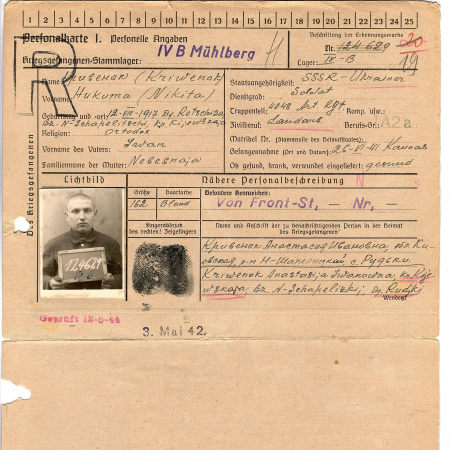 1 2 3 4 5 6 7 8 9 10 11 12 13 14 15 16 17 18 19 20 21 22 23 24 25
Personalkarte I. Personelle Angaben
Beschriftung der Erkennungsmarke
Kriegsgefangenen-Stammlager: IV B Mühlberg
Nr. 124629
Lager: IV-B
R
20
19
Name: Кривенок (Kriwenok)
Staatsangehörigkeit: SSSR-Ukrainer
Vorname: Никита (Nikita)
Dienstgrad: Soldat
Geburtstag und -ort 12-VII-1917
Truppenteil: Komp. usw.:
Religion: Ortodox
Zivilberuf: Berufs-Gr. A2a
Vorname des Vaters: Iwan
Matrikel Nr. (Stammrolle des Heimatstaates)
Gefangennahme (Ort und Datum): 26-VII-41 Kaunas
Familienname der Mutter: Nebesnaja
Ob gesund, krank, verwundet eingeliefert: gesund
Des Kriegsgefangenen
Lichtbild
Nähere Personalbeschreibung N
Größe
Haarfarbe
Besondere Kennzeichen:
162
Blond
Von Front-St, - Nr, -
Fingerabdruck
des rechten! Zeigefingers
Name und Anschrift der zu benachrichtigenden Person in der Heimat
des Kriegsgefangenen
124629
Кривенок Анастасия Ивановна
с. Рудьки
Kriwenok Anastasija Iwanowna
Rudki
Wenden!
Geprüft 12-6-44
3. Mai 42.